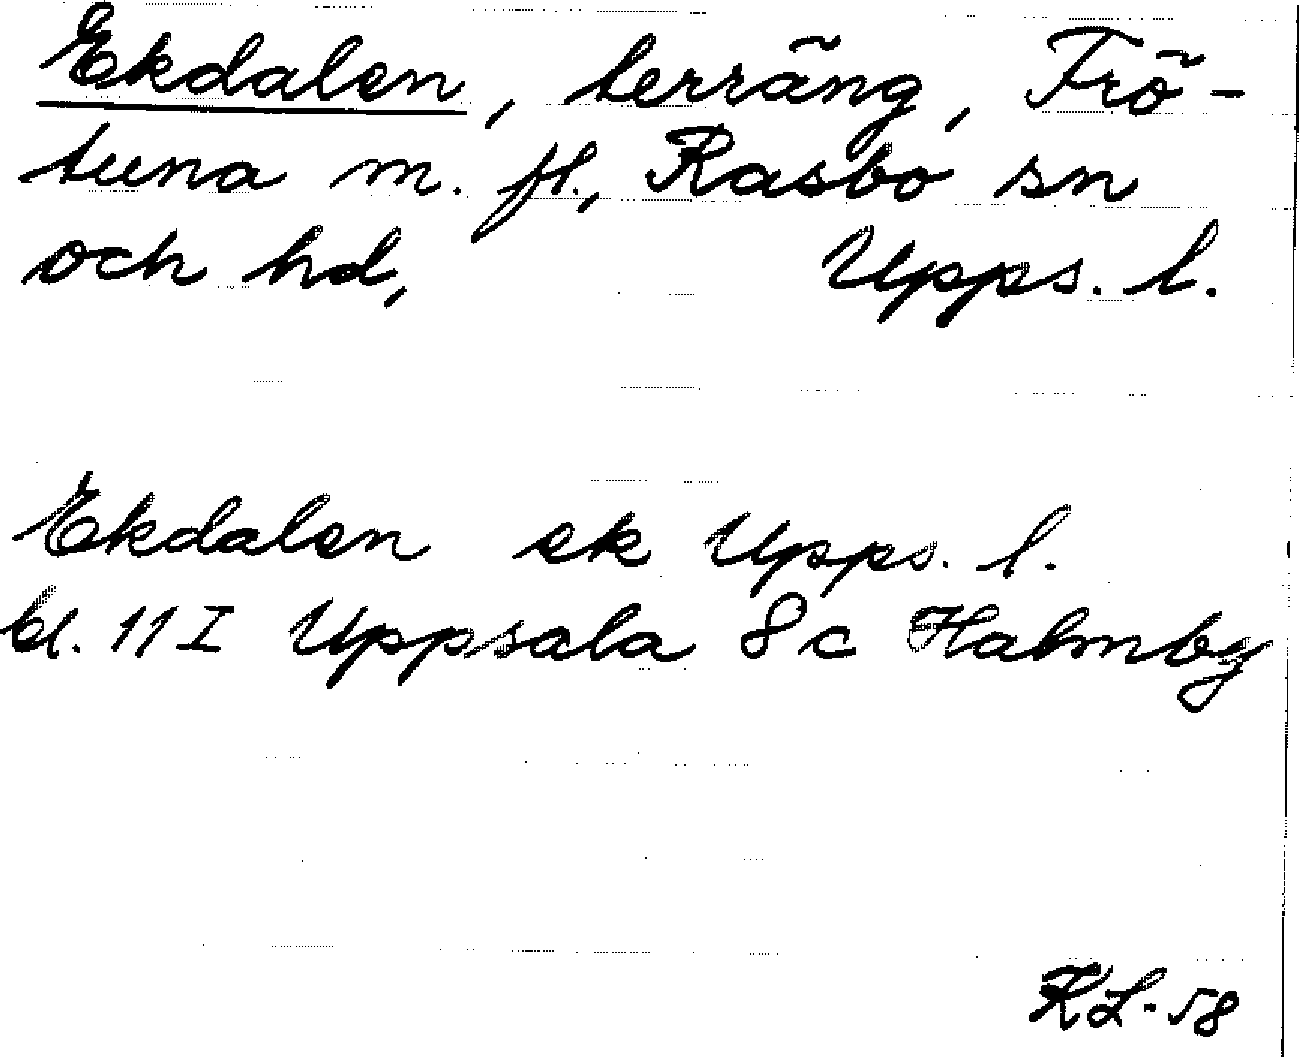 Ekdalen, terräng, Frö-
tuna m. fl., Rasbo sn
och hd, Upps. l.
Ekdalen ek Upps. l.
bl. 11 I Uppsala 8 c Halmby
KL-58